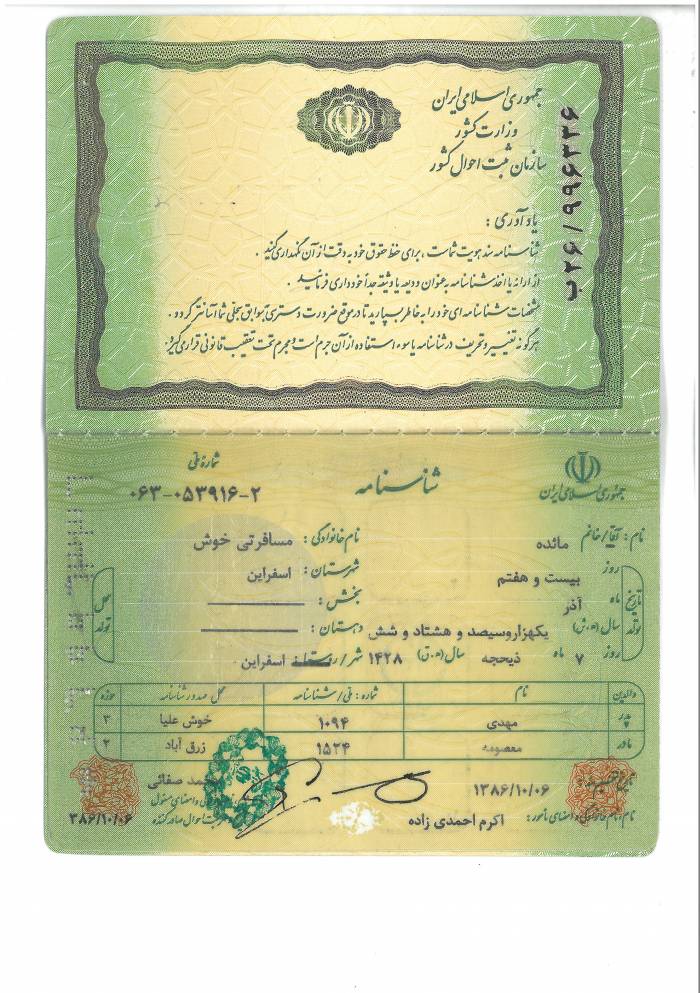 جمهوری اسلامی ایران
وزارت کشور
سازمان ثبت احوال کشور
ب۲۶/۹۹۶۳۳۶
یادآوری :
شناسنامه سند هویت شماست ، برای حفظ حقوق خود به دقت از آن نگهداری کنید .
از ارائه یا اخذ شناسنامه به عنوان ودیعه یا وثیقه جداً خودداری فرمائید .
مشخصات شناسنامه ای خود را به خاطر بسپارید تا در موقع ضرورت دسترسی به سوابق سجلی شما آسانتر گردد .
هرگونه تغییر و تحریف در شناسنامه یا سوء استفاده از آن جرم است و مجرم تحت تعقیب قانونی قرار می گیرد .
جمهوری اسلامی ایران
شناسنامه
شماره ملی
۰۶۳-۰۵۳۹۱۶-۲
نام : آقا/خانم مائده نام خانوادگی : مسافرتی خوش
تاریخ تولد روز بیست و هفتم محل تولد شهرستان : اسفراین
ماه آذر بخش :
سال (ه.ش) یکهزاروسیصد و هشتاد و شش دهستان :
روز ۷ ماه ذیحجه سال (ه.ق) ۱۴۲۸ شهر/روستا : اسفراین
والدین نام شماره : ملی/شناسنامه محل صدور شناسنامه حوزه
پدر مهدی ۱۰۹۴ خوش علیا ۳
مادر معصومه ۱۵۲۴ زرق آباد ۲
تاریخ تنظیم سند : ۱۳۸۶/۱۰/۰۶
صفائی
نام، نام خانوادگی و امضای مأمور : اکرم احمدی زاده
و امضای مسئول
ثبت احوال صادرکننده
۳۸۶/۱۰/۰۶